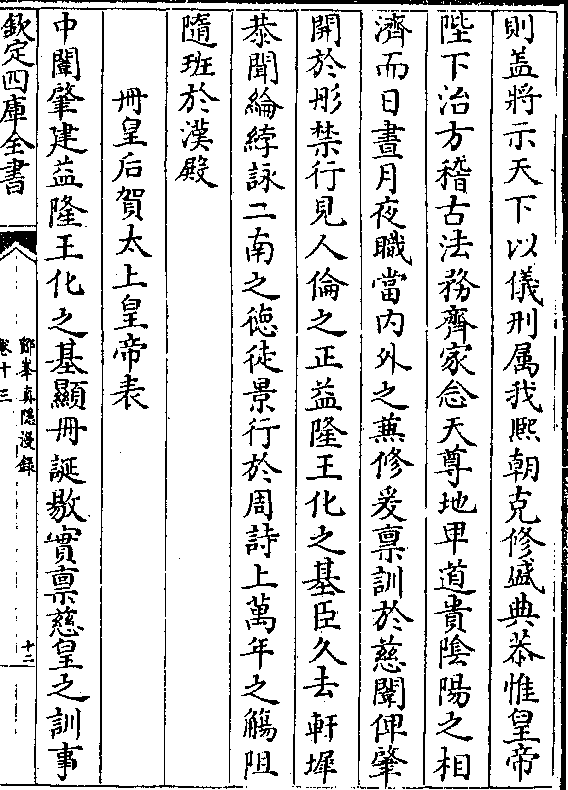 則蓋將示天下以儀刑属我熈朝克修盛典恭惟皇帝
陛下治方稽古法務齊家念天尊地卑道貴隂陽之相
濟而日晝月夜職當内外之兼修爰禀訓於慈闈俾肇
開於彤禁行見人倫之正益隆王化之基臣久去軒墀
恭聞綸綍詠二南之徳徒景行於周詩上萬年之觴阻
隨班於漢殿
冊皇后賀太上皇帝表
中闈肇建益隆王化之基顯冊誕敭實禀慈皇之訓事
欽定四庫全書
鄮峯真隠漫録
卷十三
十二